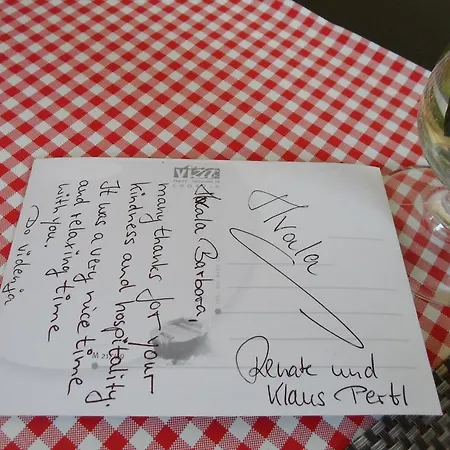 Hvala Barbora,
many thanks for your
kindness and hospitality.
It was a very nice time
and relaxing time
with you.
Do videnja
Hvala
Renate und
Klaus Pertl